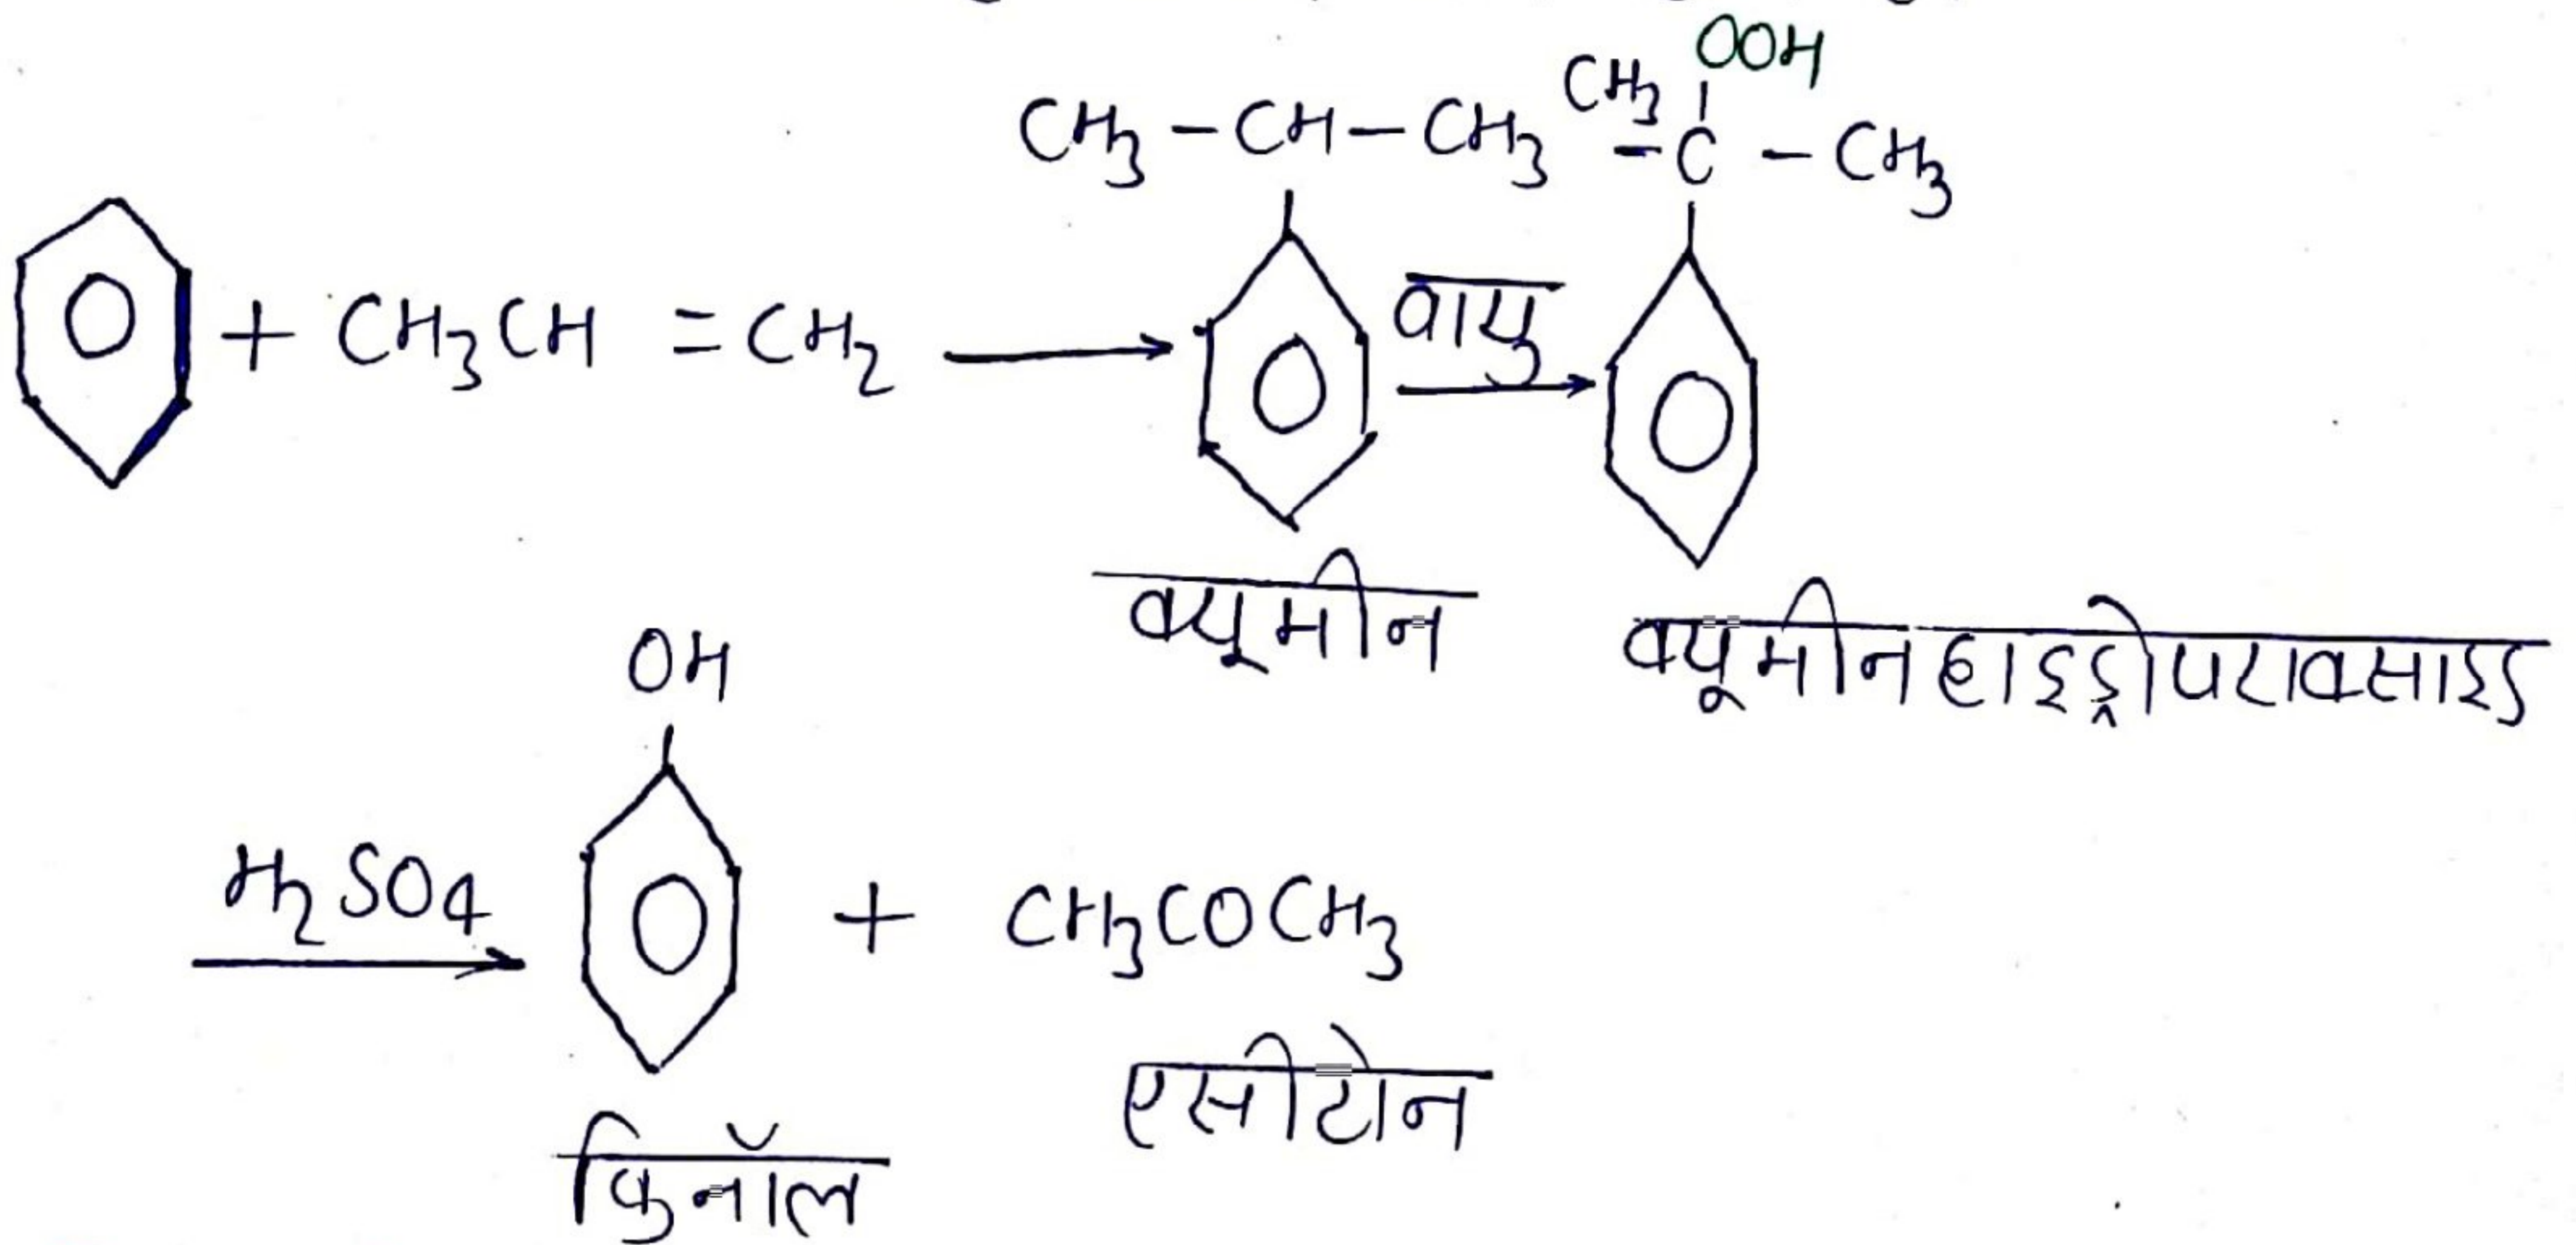 OOH
CH3 - CH - CH3 CH3 - C - CH3
+ CH3CH = CH2 वायु
क्यूमीन क्यूमीन हाइड्रोपराक्साइड
OH
H2SO4 + CH3COCH3
एसीटोन
फिनॉल